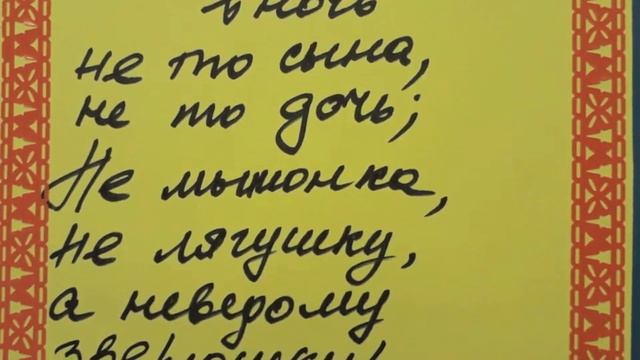 в ночь
не то сына,
не то дочь;
Не мышонка,
не лягушку,
а неведому
зверюшку!